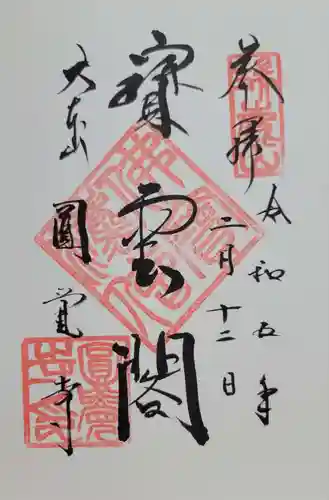 奉拝
令和五年
二月十二日
寳雲閣
大本山
圓覚寺